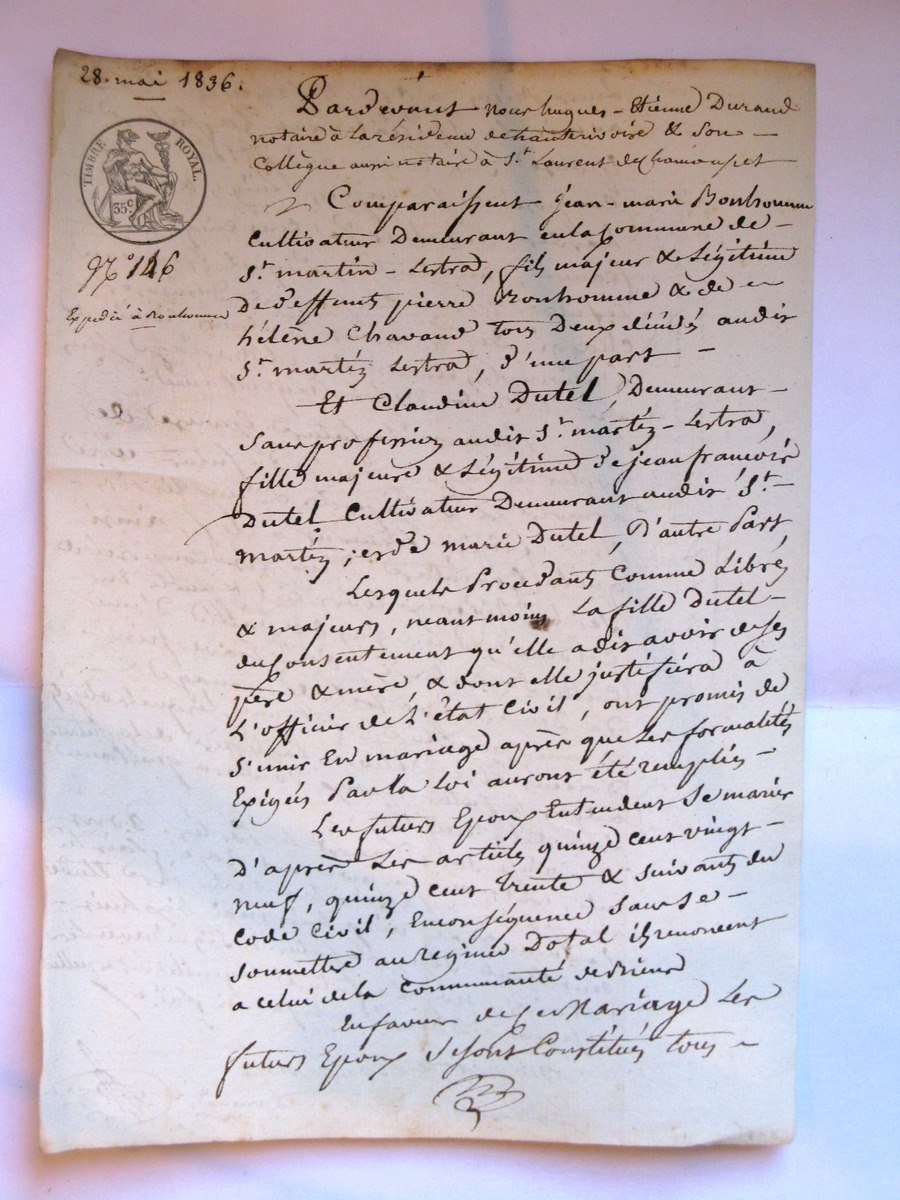 28. mai 1836.
TIMBRE ROYAL.
35 c
N° 146
Expédié à Bonhomme
Pardevant nous hugues - Etienne Durand
notaire à la résidence de hauterivoire & Son
Collègue aussi notaire à St. Laurent de chamousset
Comparaissent jean-marie Bonhomme
Cultivateur Demeurant en la Commune de
St. martin - Lestrad, fils majeur & Légitime
De deffunts pierre Bonhomme & de
hélène Chavand tous Deux décédés audit
St. martin Lestrad, d'une part
Et Claudine Dutel, Demeurant
Sans profession audit St. martin - Lestrad,
fille majeure & Légitime de jean francois
Dutel Cultivateur Demeurant audit St.
martin, et de marie Dutel, D'autre Part
Lesquels Procédants Comme Libres
& majeurs, neantmoins La fille Dutel
du Consentement qu'elle a dit avoir de ses
père & mère, & dont elle justifiera à
L'officier de L'état Civil, ont promis de
S'unir En mariage après que Les formalités
Exigés Par la Loi auront été remplies
Les futurs Epoux Entendent Se marier
D'après Les articles quinze cent vingt
neuf, quinze cent trente & suivants du
Code Civil, En conséquence Sans Se
Soumettre au regime Dotal ils renoncent
a celui de la Communauté de Biens
En faveur de ce Mariage Les
futurs Epoux Se sont Constitués tous